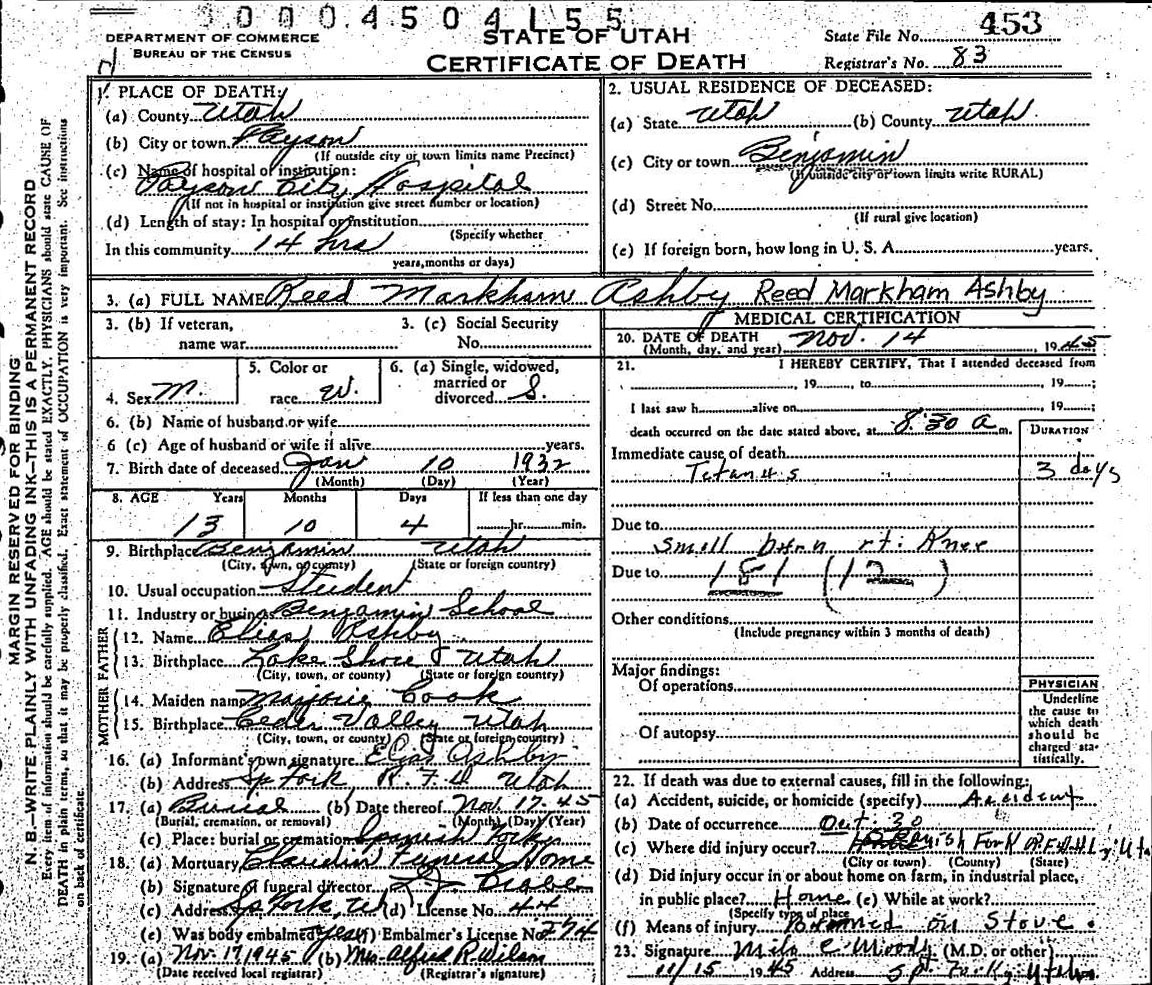 30004504155
DEPARTMENT OF COMMERCE
BUREAU OF THE CENSUS
STATE OF UTAH
CERTIFICATE OF DEATH
State File No. 453
Registrar's No. 83
MARGIN RESERVED FOR BINDING
N. B.—WRITE PLAINLY WITH UNFADING INK—THIS IS A PERMANENT RECORD
Every item of information should be carefully supplied. AGE should be stated EXACTLY. PHYSICIANS should state CAUSE OF
DEATH in plain terms, so that it may be properly classified. Exact statement of OCCUPATION is very important. See instructions
on back of certificate.
1. PLACE OF DEATH:
(a) County Utah
(b) City or town Payson
(If outside city or town limits name Precinct)
(c) Name of hospital or institution:
Payson City Hospital
(If not in hospital or institution give street number or location)
(d) Length of stay: In hospital or institution
(Specify whether
In this community 14 hrs
years, months or days)
2. USUAL RESIDENCE OF DECEASED:
(a) State Utah (b) County Utah
(c) City or town Benjamin
(If outside city or town limits write RURAL)
(d) Street No.
(If rural give location)
(e) If foreign born, how long in U. S. A. years.
3. (a) FULL NAME Reed Markham Ashby Reed Markham Ashby
3. (b) If veteran,
name war
3. (c) Social Security
No.
4. Sex M.
5. Color or
race W.
6. (a) Single, widowed,
married or
divorced S.
6. (b) Name of husband or wife
6 (c) Age of husband or wife if alive years.
7. Birth date of deceased Jan 10 1932
(Month) (Day) (Year)
8. AGE Years Months Days If less than one day
13 10 4 hr. min.
9. Birthplace Benjamin Utah
(City, town, or county) (State or foreign country)
10. Usual occupation Student
11. Industry or business Benjamin School
FATHER
12. Name Elias Ashby
13. Birthplace Lake Shore Utah
(City, town, or county) (State or foreign country)
MOTHER
14. Maiden name Marjorie Cook
15. Birthplace Cedar Valley Utah
(City, town, or county) (State or foreign country)
16. (a) Informant's own signature Elias Ashby
(b) Address Sp Fork R.F.D. Utah
17. (a) Burial (b) Date thereof Nov. 17. 45
(Burial, cremation, or removal) (Month) (Day) (Year)
(c) Place: burial or cremation Spanish Fork
18. (a) Mortuary Claudin Funeral Home
(b) Signature of funeral director
(c) Address Sp Fork, Ut (d) License No. 44
(e) Was body embalmed yes (f) Embalmer's License No. 274
19. (a) Nov. 17, 1945 (b) Mrs. Alfred R. Wilson
(Date received local registrar) (Registrar's signature)
MEDICAL CERTIFICATION
20. DATE OF DEATH Nov. 14 1945
(Month, day, and year)
21. I HEREBY CERTIFY, That I attended deceased from
, 19 , to , 19 ;
I last saw h alive on , 19 ;
death occurred on the date stated above, at 8:30 a m.
DURATION
Immediate cause of death
Tetanus 3 days
Due to
small burn rt. Knee
Due to 181 (12)
Other conditions
(Include pregnancy within 3 months of death)
Major findings:
Of operations
Of autopsy
PHYSICIAN
Underline
the cause to
which death
should be
charged sta-
tistically.
22. If death was due to external causes, fill in the following:
(a) Accident, suicide, or homicide (specify) Accident
(b) Date of occurrence Oct. 30
(c) Where did injury occur? Fork
(City or town) (County) (State)
(d) Did injury occur in or about home on farm, in industrial place,
in public place? Home (e) While at work?
(Specify type of place
(f) Means of injury Burned on Stove.
23. Signature Milo C Moody (M.D. or other)
11/15 1945 Address Sp. Fork, Utah